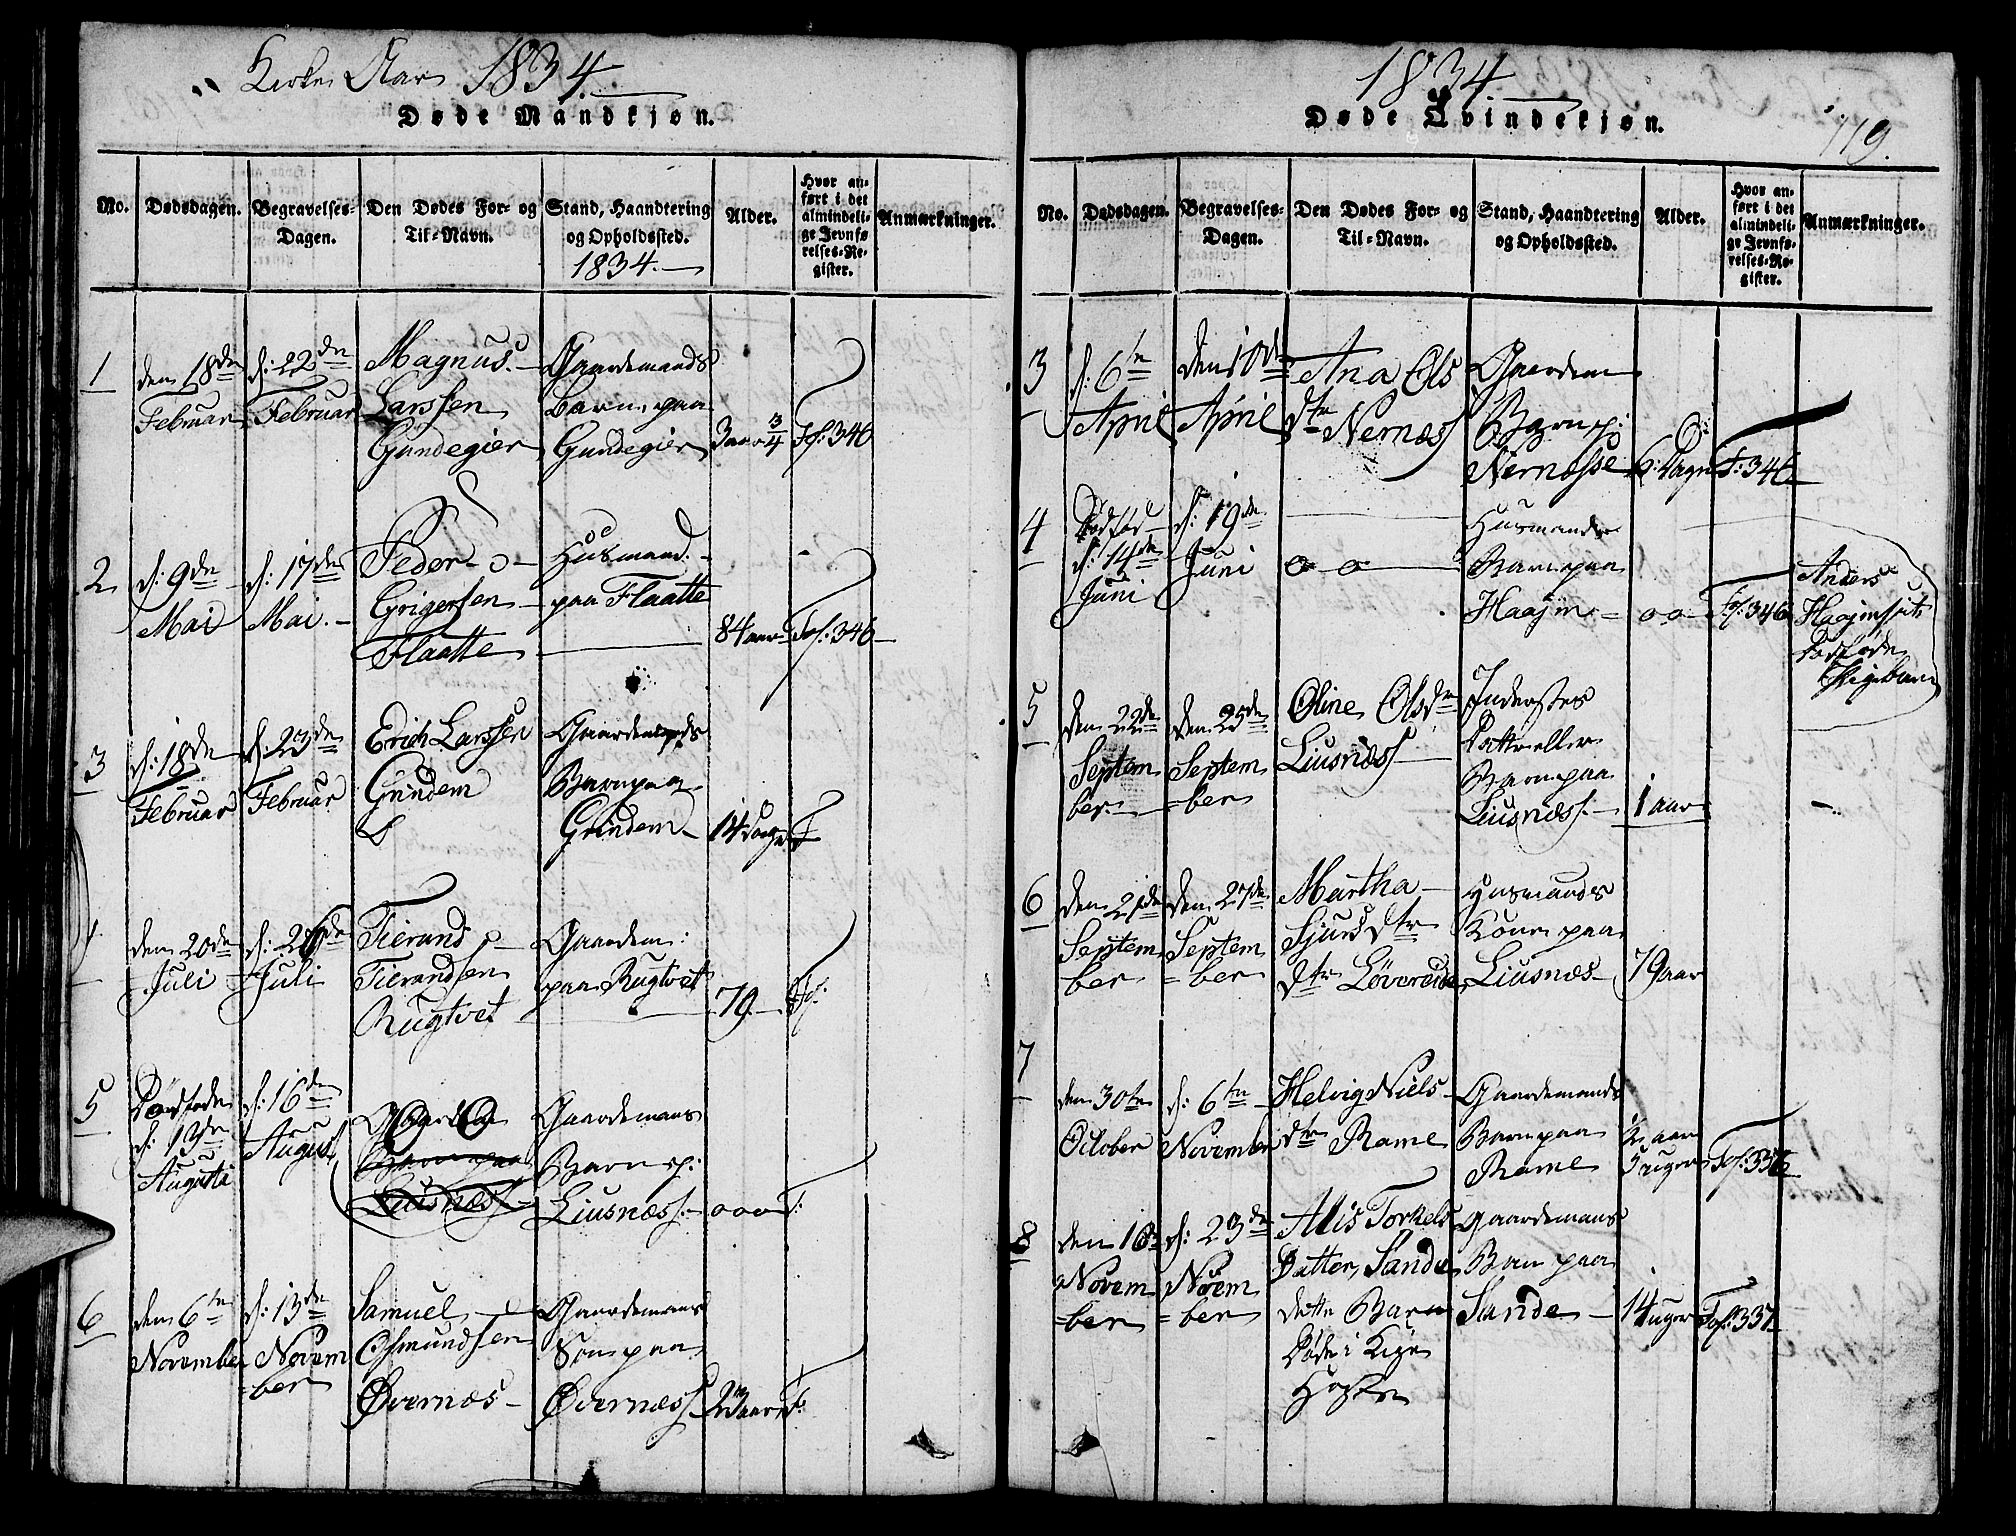 Kirke Aar 1834.
Døde Mandkjøn.
No.
Dødsdagen.
Begravelses-
Dagen.
Den Dødes For- og
Til-Navn.
Stand, Haandtering
og Opholdssted.
1834.
Alder.
Hvor an-
ført i det
almindeli-
ge Jevnfø-
relses-Re-
gister.
Anmærkninger.
1
den 18de
Februar
d: 22de
Februar
Magnus
Larssen
Gundegier
Gaardemands
Barn paa
Gundegier
3 aar 3/4
Fol: 346
2
d: 9de
Mai
d: 17de
Mai.
Peder
Grigersen
Flaatte
Husmand.
paa Flaatte
84 aar
Fol: 346
3
d: 18de
Februar
d: 23de
Februar
Erich Larssen
Grindem
Gaardemands
Barn paa
Grindem
14 Dage
F
4
den 20de
Juli
d: 26de
Juli
Tierand
Tierandsen
Rugtvet
Gaardem:
paa Rugtvet
79.
Fol:
5
Dødføde
d: 13de
Augusti
d: 16de
August
Barn paa
Liusnæs
Gaardemans
Barn p:
Liusnæs.
000
F:
6
den 6te
November
d: 13de
Novem
=ber
Samuel
Osmundsen
Øvernæs
Gaardemans
Søn paa
Øvernæs
23 aar
F:
1834.
Døde Qvindekjøn.
119.
No.
Dødsdagen.
Begravelses-
Dagen.
Den Dødes For- og
Til-Navn.
Stand, Haandtering
og Opholdssted.
Alder.
Hvor an-
ført i det
almindeli-
ge Jevnfø-
relses-Re-
gister.
Anmærkninger.
3
d: 6te
April
den 10de
April
Ana Ols
dtr Nernæs
Gaardem
Barn p:
Nernæsse
6: Dage
F: 346
4
Dødfød
d: 14de
Juni
d: 19de
Juni
o o
Husmands
Barn paa
Haajm
o o
Fol: 346
Anders
Haajms
Dødføde
Pigebarn
5
den 22de
Septem
ber.
den 25de
Septem
=ber
Oline Olsdr
Liusnæs
Inderstes
Datter eller
Barn paa
Liusnæs.
1 aar
6
den 21de
Septem
ber
den 27de
Septem
=ber
Martha
Sjurs dtr
dtr Løvereide
Husmands
Kone paa
Liusnæs
79 aar
7
den 30te
October
d: 6te
November
Helvig Niels
dtr Rame
Gaardemands
Barn paa
Rame
1/2 aar
5 uger
Fol: 336
8
den 16
Novem
=ber
d: 23de
Noem
=ber
Alis Torkels
Datter, Sande
dette Barn
Døde i
Gaardemans
Barn paa
Sande
14 uger
Fol: 337